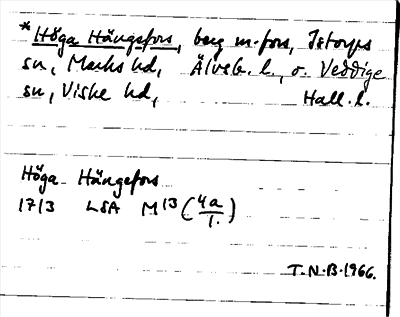 *Höga Hängefors, berg m. fors, Istorps
sn, Marks hd, Älvsb. l., o. Veddige
sn, Viske hd, Hall. l.
Höga Hängefors
1713 LSA M13 (4a/1.)
T.N.B. 1966.